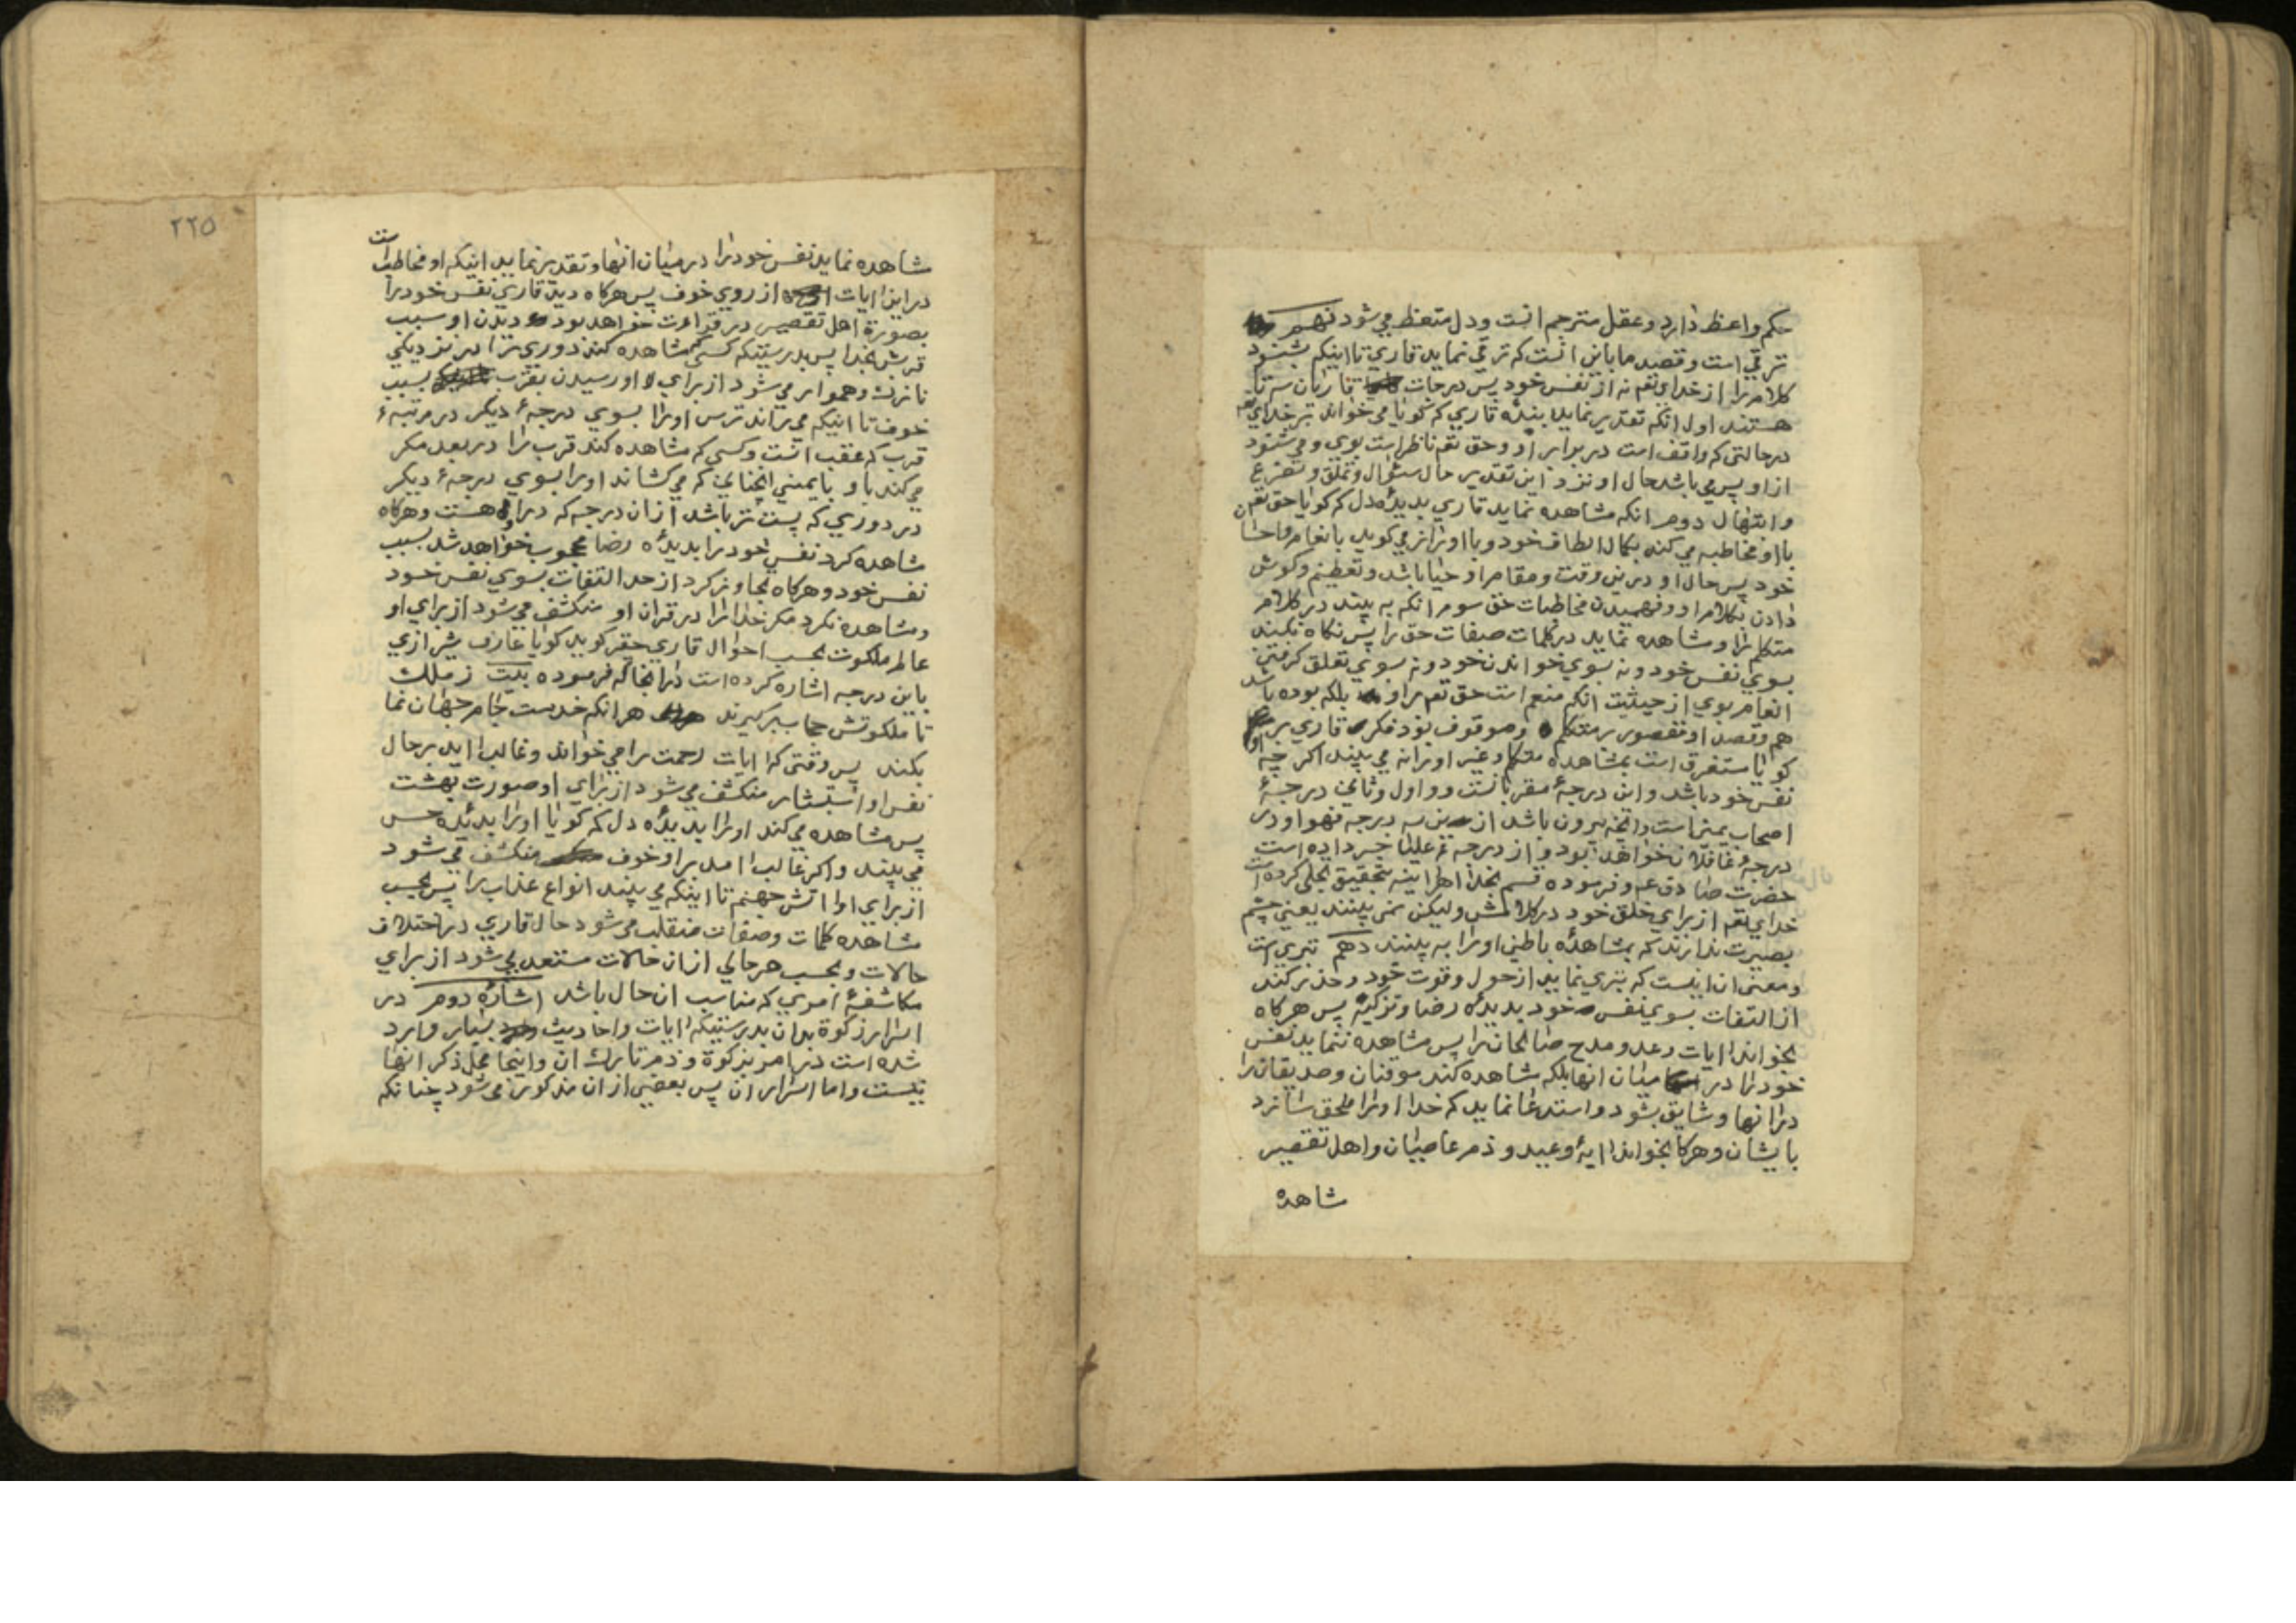 حکم واعظ دارد و عقل مترجم انست ودل متعظ می شود نهم
ترقی است وقصد ما باین انست که ترقی نماید قاری تا اینکه بشنود
کلام را از خدای تعم نه از نفس خود پس درجات قاریان سه تا
هستند اول انکه تقدیر نماید بنده قاری که کویا می خواند بر خدای تعم
درحالتی که واقف است در برابر او وحق تعم ناظر است بوی و می شنود
از او پس می باشد حال او نزد این تقدیر حال سئوال و تملق و تضرع
وابتهال دوم انکه مشاهده نماید قاری بدیدۀ دل که کویا حق تعم
با او مخاطبه می کند بکمال الطاف خود و با او راز می کوید بانعام واحسان
خود پس حال او درین وقت ومقام او حیا باشد وتعظیم وکوش
دادن بکلام او وفهمیدن مخاطبات حق سوم انکه به بیند در کلام
متکلم را ومشاهده نماید در کلمات صفات حق را پس نکاه نکند
بسوی نفس خود ونه بسوی خواندن خود ونه بسوی تعلق کرفتن
انعام بوی از حیثیت انکه منعم است حق تعم بر او بلکه بوده باشد
هم وقصد او مقصور بر متکلم وموقوف بود فکر قاری بر
کویا مستغرق است بمشاهده متکلم وغیر او را نه می بیند اکر چه
نفس خود باشد واین درجۀ مقربانست و اول وثانی درجۀ
اصحاب یمین است وانچه بیرون باشد از این سه درجه فهو او در
درجۀ غافلان خواهد بود و از درجه علیا خبر داده است
حضرت صادق عم وفرموده قسم بخدا هر اینه بتحقیق تجلی کرده است
خدای تعم از برای خلق خود در کلامش ولیکن نمی بینند یعنی چشم
بصیرت ندارند که بمشاهدۀ باطنی او را به بینند دهم تبری است
ومعنی ان اینست که تبری نماید از حول وقوت خود وحذر کند
از التفات بسوی نفس خود بدیدۀ رضا وتزکیه پس هرکاه
بخواند ایات وعد ومدح صالحان را پس مشاهده ننماید نفس
خود را در میان انها بلکه مشاهده کند موقنان وصدیقان را
در انها وشایق بشود واستدعا نماید که خدا او را ملحق سازد
بایشان وهرکاه بخواند ایۀ وعید و ذم عاصیان واهل تقصیر
شاهده
٢٢٥
شاهده نماید نفس خود را در میان انها وتقدیر نماید اینکه او مخاطب است
در این ایات از روی خوف پس هرکاه دید قاری نفس خود را
بصورة اهل تقصیر در قراءت خواهد بود دیدن او سبب
قربش بخدا پس بدرستیکه کسی که مشاهده کند دوری را در نزدیکی
نازک وهموار می شود از برای او رسیدن بقرب بسبب
خوف تا اینکه می راند ترس او را بسوی درجۀ دیکر در مرتبۀ
قرب که عقب انست وکسی که مشاهده کند قرب را در بعد مکر
می کند با او بایمنی انچنانی که می کشاند او را بسوی درجۀ دیکر
در دوری که پست تر باشد از ان درجه که در او هست وهرکاه
مشاهده کرد نفس خود را بدیدۀ رضا محجوب خواهد شد بسبب
نفس خود وهرکاه تجاوز کرد از حد التفات بسوی نفس خود
ومشاهده نکرد مکر خدا را در قران او منکشف می شود از برای او
عالم ملکوت بحسب احوال قاری حقر کوید کویا عارف شیرازی
باین درجه اشاره کرده است در انجا که فرموده بیت ز ملک
تا ملکوتش حجاب برکیرند هر انکه خدمت جام جهان نما
بکند پس وقتی که ایات رحمت را می خواند وغالب اید بر حال
نفس او استبشار منکشف می شود از برای او صورت بهشت
پس مشاهده می کند او را بدیدۀ دل که کویا او را بدیدۀ حس
می بیند واکر غالب امد بر او خوف منکشف می شود
از برای او اتش جهنم تا اینکه می بیند انواع عذاب را پس بحسب
مشاهده کلمات وصفات منقلب می شود حال قاری در اختلاف
حالات وبحسب هر حالی از ان حالات مستعد می شود از برای
مکاشفۀ اموری که مناسب ان حال باشد اشارۀ دوم در
اسرار زکوة بدان بدرستیکه ایات واحادیث بسیار وارد
شده است در امر بزکوة و ذم تارک ان واینجا محل ذکر انها
نیست واما اسرار ان پس بعضی از ان مذکور می شود چنانکه